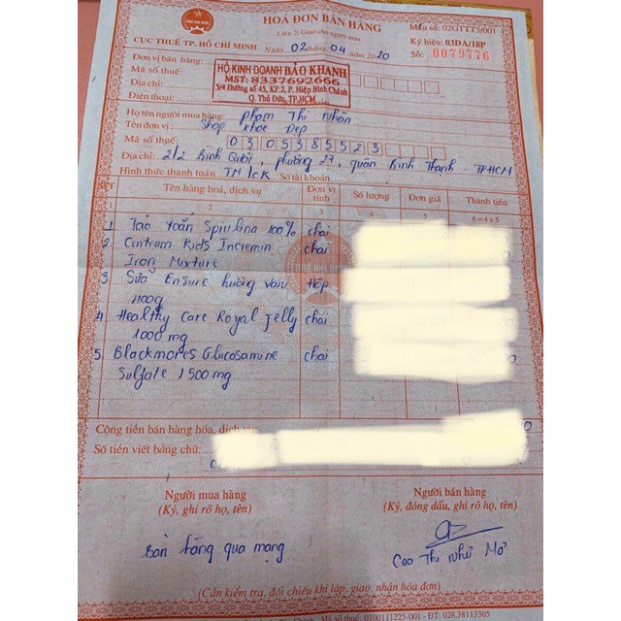 HOÁ ĐƠN BÁN HÀNG
Mẫu số: 02GTTT3/001
Liên 2: Giao cho người mua
Ký hiệu: 03DA/18P
CỤC THUẾ TP. HỒ CHÍ MINH
Ngày 02 tháng 04 năm 2020
Số: 0079776
Đơn vị bán hàng:
HỘ KINH DOANH BẢO KHANH
Mã số thuế:
MST: 8337692666
Địa chỉ:
5/4 Đường số 45, KP.2, P. Hiệp Bình Chánh
Q. Thủ Đức, TP.HCM
Điện thoại:
Họ tên người mua hàng: Phạm Thị Nhân
Tên đơn vị: Shop Khỏe Đẹp
Mã số thuế: 0305385523
Địa chỉ: 2/2 Bình Quới, phường 27, quận Bình Thạnh - TPHCM
Hình thức thanh toán: TM/CK Số tài khoản
STT Tên hàng hoá, dịch vụ Đơn vị tính Số lượng Đơn giá Thành tiền
1 2 3 4 5 6 = 4 x 5
1 Tảo xoắn Spirulina 100% chai
2 Centrum Kids Incremin chai
Iron Mixture
3 Sữa Ensure hương vani Hộp
400g
4 Healthy Care Royal Jelly chai
1000 mg
5 Blackmores Glucosamine chai
Sulfate 1500 mg
Cộng tiền bán hàng hóa, dịch vụ:
Số tiền viết bằng chữ:
Người mua hàng Người bán hàng
(Ký, ghi rõ họ, tên) (Ký, đóng dấu, ghi rõ họ, tên)
Bán hàng qua mạng
Cao Thị Như Mơ
(Cần kiểm tra, đối chiếu khi lập, giao, nhận hóa đơn)
Mã số thuế: 0100111225-001 - ĐT: 028.38113305